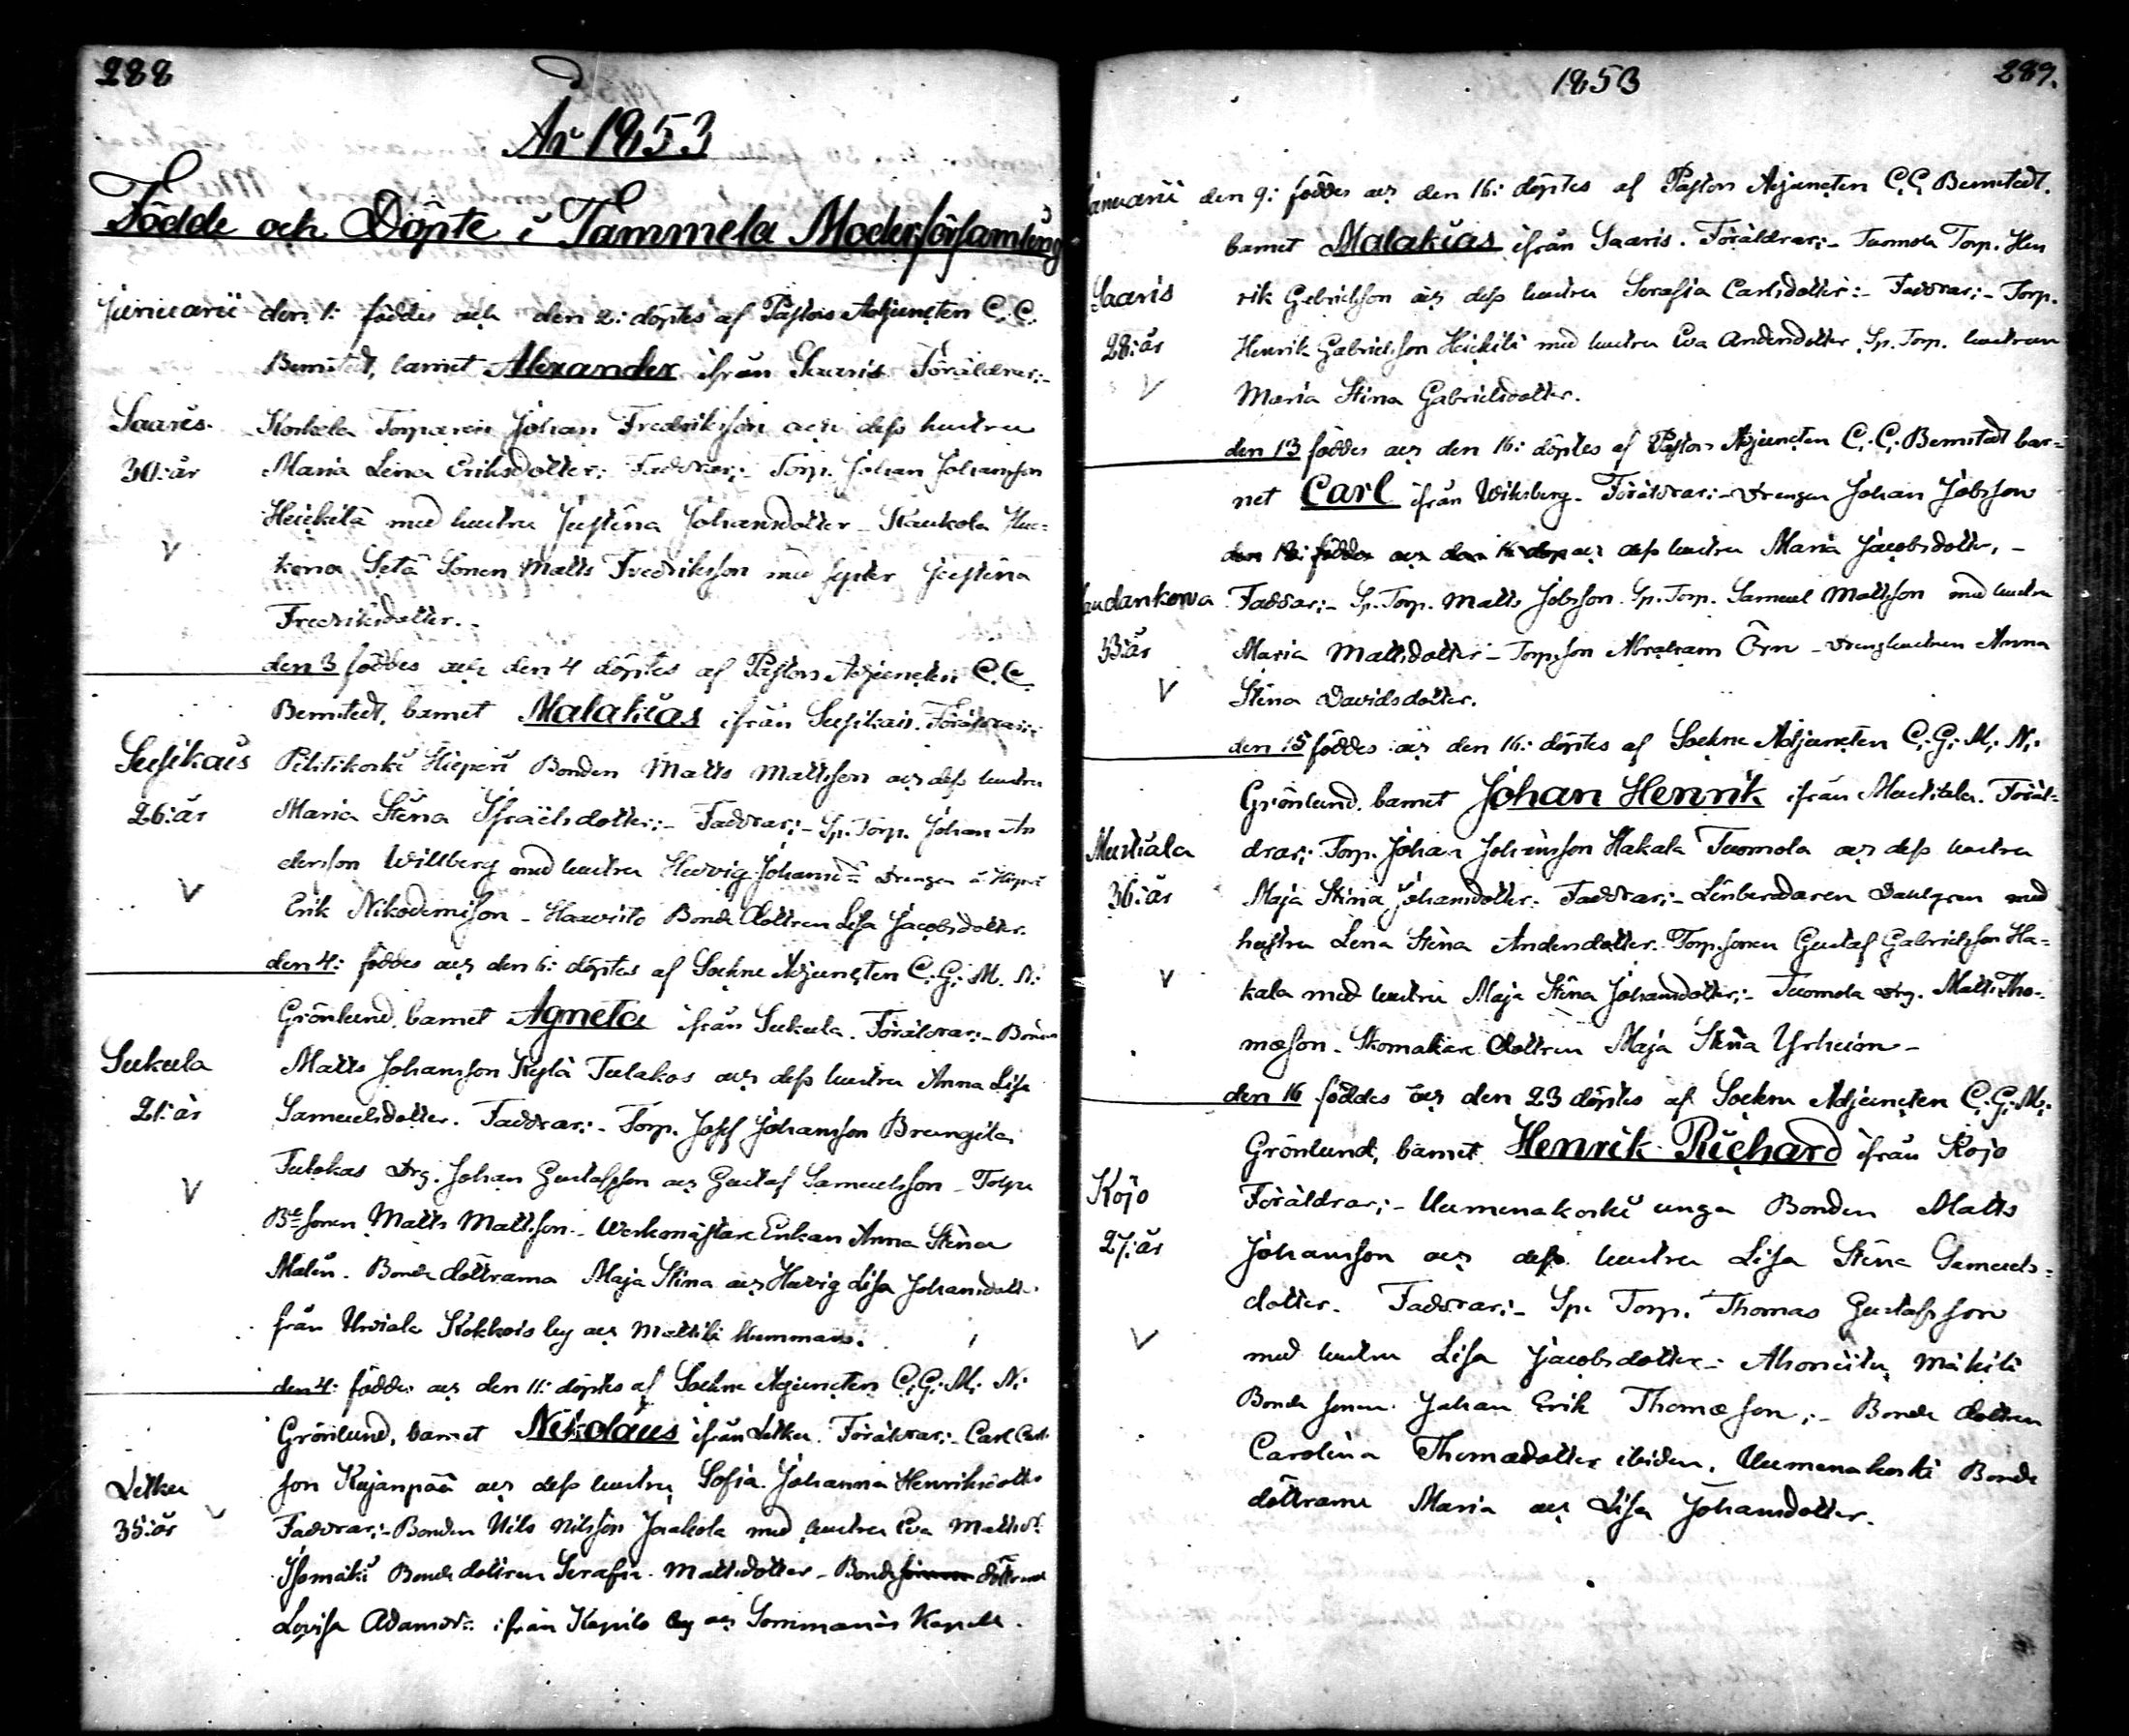 288
År 1853
Födde och Döpte i Tammela Moderförsamling
Januarii den 1: föddes och den 2: döptes af Pastors Adjuncten C. C.
Bernstedt, barnet Alexander ifrån Saaris. Föräldrar:-
Saaris. Korkela Torparen Johan Fredriksson och dess hustru
30: år Maria Lena Eriksdotter: Faddrar:- Torp. Johan Johansson
Heickilä med hustru Justina Johansdotter - Kaukola
V Setä Sonen Matts Fredriksson med syster Justina
Fredriksdotter.
den 3 föddes och den 4 döptes af Pastors Adjuncten C. C.
Bernstedt, barnet Malakias ifrån Susikais. Föräldrar:-
Susikais Bonden Matts Mattsson och dess hustru
26: år Maria Stina Israelsdotter:- Faddrar:- Sp. Torp. Johan An
dersson Willberg med hustru Hedvig Johansd:r Drengen
V Erik Nikodemisson - Bonde dottren Lisa Jacobsdotter.
den 4: föddes och den 6: döptes af Sockne Adjuncten C. G. M. N:
Grönlund, barnet Agneta ifrån Sukula. Föräldrar:- Bonden
Sukula Matts Johansson Kylä Tulokas och dess hustru Anna Lisa
21: år Samuelsdotter. Faddrar:- Torp. Josef Johansson
Tulokas Drg. Johan Gustafsson och Gustaf Samuelsson -
V B:e sonen Matts Mattsson - Werkmästare Enkan Anna Stina
Malin. Bonde döttrarna Maja Stina och Hedvig Lisa Johansdott.
från Urdiala by och Mattila
den 4: föddes och den 11: döptes af Sockne Adjuncten C. G. M. N:
Grönlund, barnet Nikolaus ifrån Letku. Föräldrar:- Carl Carls
Letku son Kujanpää och dess hustru Sofia Johanna Henriksdotter
35: år V Faddrar:- Bonden Nils Nilsson Jaakola med hustru Eva Mattsd:r
Isomäki Bonde dottren Serafia Mattsdotter - Bonde dottren
Lovisa Adamsd:r ifrån by och Sommarnäs Kapell.
1853
289.
Januarii den 9: föddes och den 16: döptes af Pastors Adjuncten C. C. Bernstedt.
barnet Malakias ifrån Saaris. Föräldrar:- Tuomola Torp. Hen
Saaris rik Gabrielsson och dess hustru Serafia Carlsdotter:- Faddrar:- Torp.
28: år Henrik Gabrielsson Heickilä med hustru Eva Andersdotter Sp. Torp. hustrun
V Maria Stina Gabrielsdotter.
den 13 föddes och den 16: döptes af Pastors Adjuncten C. C. Bernstedt bar=
net Carl ifrån Wiksberg. Föräldrar:- Drengen Johan Jobsson
den 13: föddes och den 16 döp och dess hustru Maria Jacobsdotter, -
Faddrar:- Sp. Torp. Matts Jobsson. Sp. Torp. Samuel Mattsson med hustru
33: år Maria Mattsdotter - Torpsson Abraham Örn - Drenghustrun Anna
V Stina Davidsdotter.
den 15 föddes och den 16: döptes af Sockne Adjuncten C. G. M. N:
Grönlund. barnet Johan Henrik ifrån Mustiala. Föräl=
Mustiala drar; Torp. Johan Johansson Hakala Tuomola och dess hustru
36: år Maja Stina Johansdotter. Faddrar:- Linberedaren Dahlgren med
hustru Lena Stina Andersdotter. Torp. sonen Gustaf Gabrielsson Ha=
V kala med hustru Maja Stina Johansdotter:- Tuomola Drg. Matts Tho=
masson. Skomakare dottren Maja Stina
den 16 föddes och den 23 döptes af Sockne Adjuncten C. G. M.
Grönlund, barnet Henrik Richard ifrån Kojo
Kojo Föräldrar:- Uumenakoski unga Bonden Matts
27: år Johansson och dess hustru Lisa Stina Samuels=
dotter. Faddrar:- Sp. Torp. Thomas Gustafsson
V med hustru Lisa Jacobsdotter:- Mäkilä
Bonde sonen Johan Erik Thomasson;- Bonde dottren
Carolina Thomasdotter ibidem, Uumenakoski Bonde
döttrarna Maria och Lisa Johansdotter.